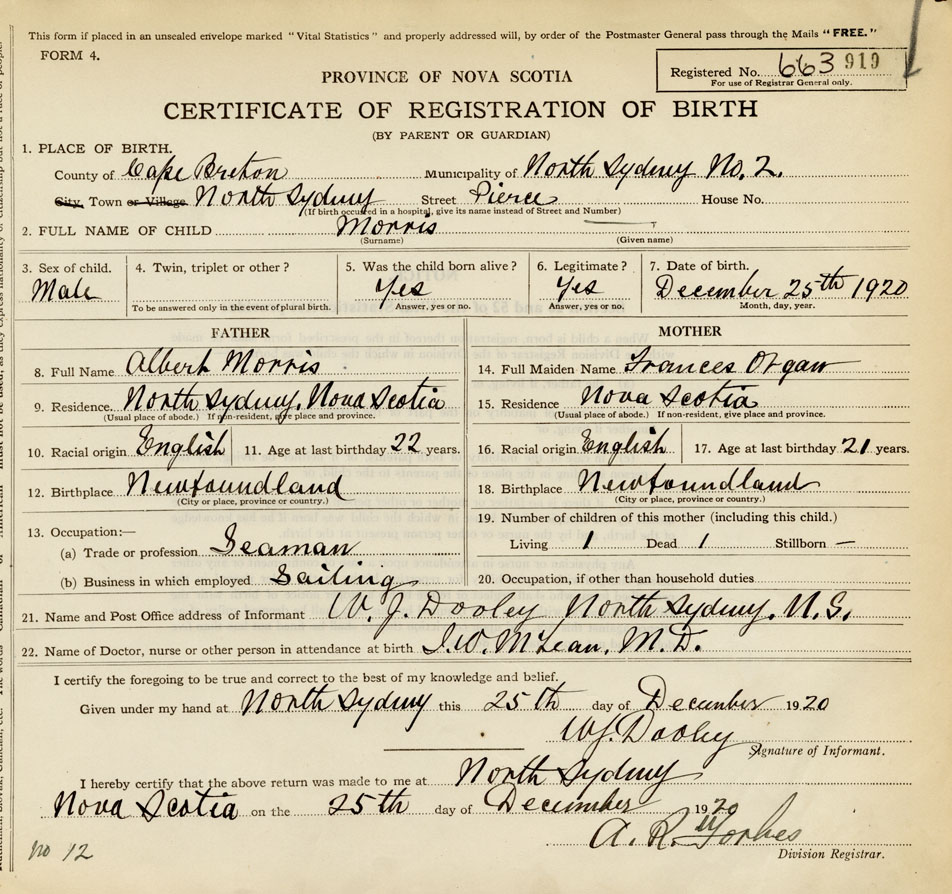 This form if placed in an unsealed envelope marked "Vital Statistics" and properly addressed will, by order of the Postmaster General pass through the Mails "FREE."
FORM 4.
Registered No. 663 919
For use of Registrar General only.
PROVINCE OF NOVA SCOTIA
CERTIFICATE OF REGISTRATION OF BIRTH
(BY PARENT OR GUARDIAN)
1. PLACE OF BIRTH.
County of Cape Breton Municipality of North Sydney No. 2.
City, Town or Village North Sydney Street Pierce House No.
(If birth occured in a hospital, give its name instead of Street and Number)
2. FULL NAME OF CHILD Morris
(Surname) (Given name)
3. Sex of child. 4. Twin, triplet or other? 5. Was the child born alive? 6. Legitimate? 7. Date of birth.
Male Yes Yes December 25th 1920
To be answered only in the event of plural birth. Answer, yes or no. Answer, yes or no. Month, day, year.
FATHER
8. Full Name Albert Morris
9. Residence. North Sydney, Nova Scotia
(Usual place of abode.) If non-resident, give place and province.
10. Racial origin English 11. Age at last birthday 22 years.
12. Birthplace Newfoundland
(City or place, province or country.)
13. Occupation:—
(a) Trade or profession Seaman
(b) Business in which employed Sailing
MOTHER
14. Full Maiden Name Frances Organ
15. Residence Nova Scotia
(Usual place of abode.) If non-resident, give place and province.
16. Racial origin English 17. Age at last birthday 21 years.
18. Birthplace Newfoundland
(City or place, province or country.)
19. Number of children of this mother (including this child.)
Living 1 Dead 1 Stillborn —
20. Occupation, if other than household duties
21. Name and Post Office address of Informant W. J. Dooley North Sydney, N.S.
22. Name of Doctor, nurse or other person in attendance at birth J. W. McLean, M.D.
I certify the foregoing to be true and correct to the best of my knowledge and belief.
Given under my hand at North Sydney this 25th day of December 1920
W. J. Dooley
Signature of Informant.
I hereby certify that the above return was made to me at North Sydney
Nova Scotia on the 25th day of December 1920
A. R. Forbes
Division Registrar.
no 12